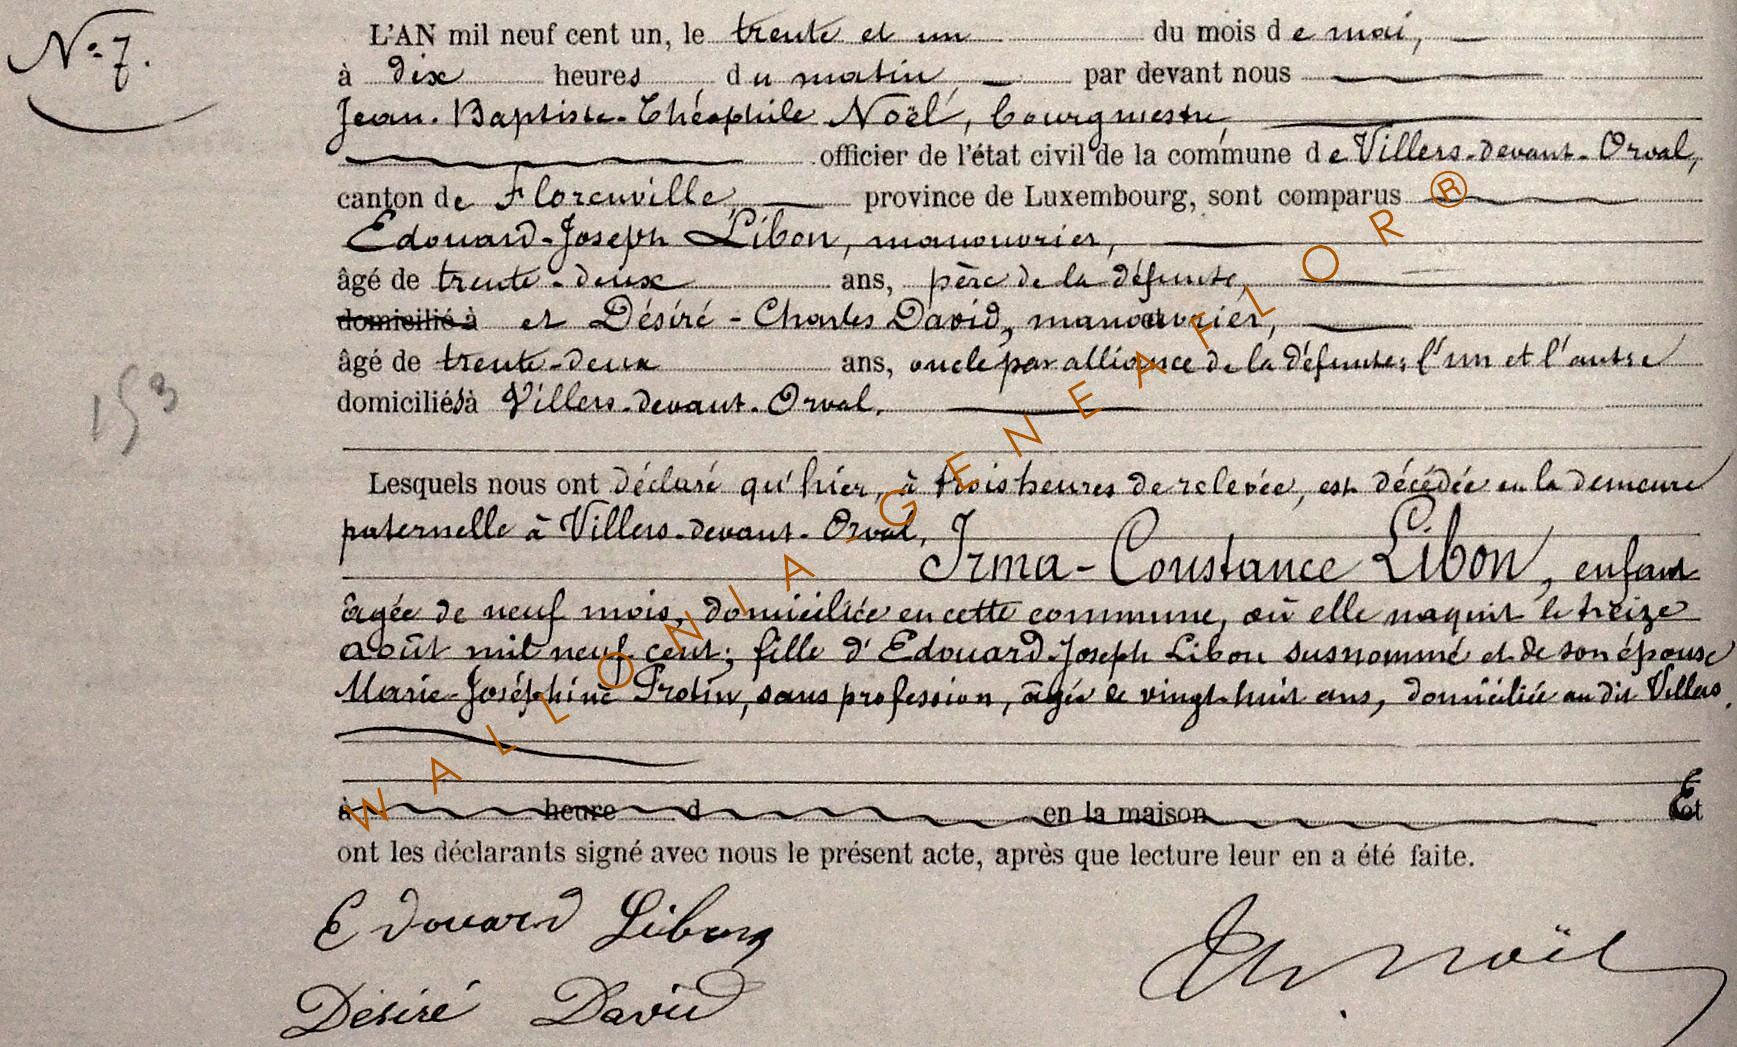 Nº 7.
L'AN mil neuf cent un, le trente et un du mois de mai,
à dix heures du matin, par devant nous
Jean-Baptiste-Théophile Noël, bourgmestre,
officier de l'état civil de la commune de Villers-devant-Orval,
canton de Florenville, province de Luxembourg, sont comparus
Edouard-Joseph Libon, manouvrier,
âgé de trente-deux ans, père de la défunte,
domicilié à et Désiré-Charles David, manouvrier,
âgé de trente-deux ans, oncle par alliance de la défunte; l'un et l'autre
domiciliés à Villers-devant-Orval.
153
Lesquels nous ont déclaré qu'hier, à trois heures de relevée, est décédée en la demeure
paternelle à Villers-devant-Orval,
Irma-Constance Libon, enfant
âgée de neuf mois, domiciliée en cette commune, où elle naquit le treize
août mil neuf cent; fille d'Edouard-Joseph Libon susnommé et de son épouse
Marie-Joséphine Protin, sans profession, âgée de vingt-huit ans, domiciliée au dit Villers.
à heure d en la maison Et
ont les déclarants signé avec nous le présent acte, après que lecture leur en a été faite.
Edouard Libon
Th. Noël
Désiré David
WALLONIA-GENEAFLOR®